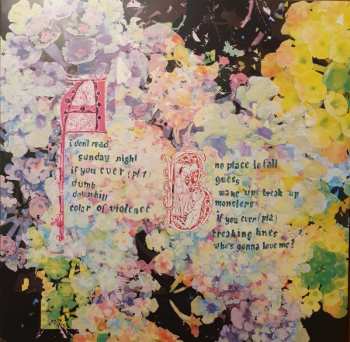 A
i don't read
sunday night
if you ever (pt.1)
dumb
downhill
color of violence
B
no place to fall
guess
wake up / break up
monsters
if you ever (pt.2)
breaking lines
who's gonna love me?